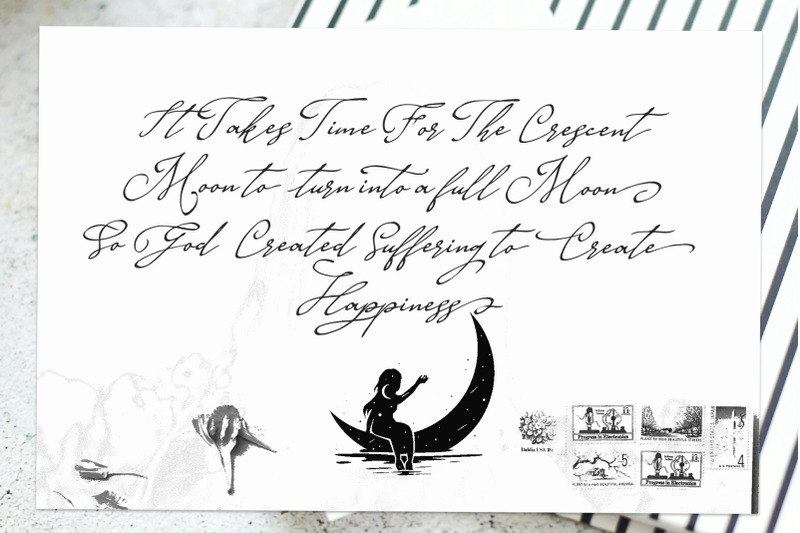 It Takes Time For The Crescent
Moon to turn into a full Moon
So God Created Suffering to Create
Happiness
Dahlia USA 18c
Progress in Electronics
PLANT for MORE BEAUTIFUL STREETS
5c
PLANT for MORE BEAUTIFUL AMERICA
Progress in Electronics
4
U.S. POSTAGE